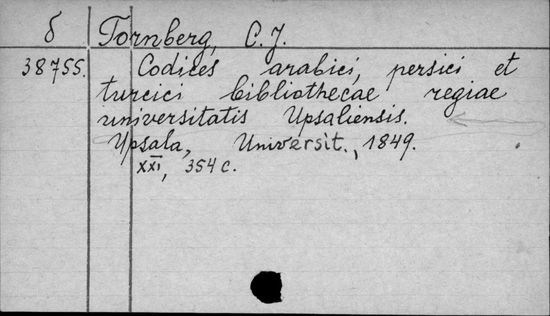 б Tornberg, C. J.
38755. Codices arabici, persici et
turcici bibliothecae regiae
universitatis Upsaliensis.
Upsala, Universit., 1849.
XXI, 354 c.